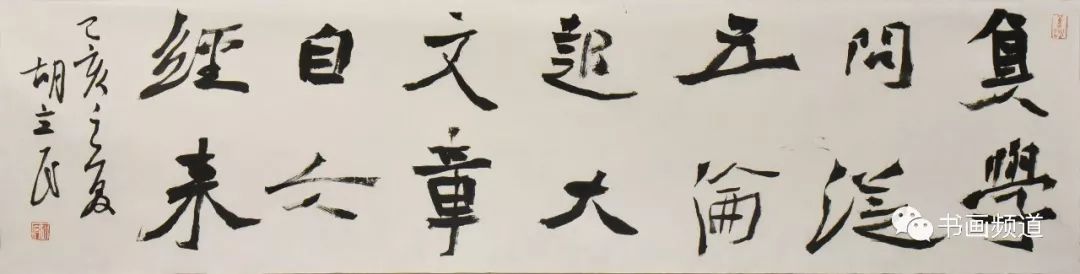 真學
問從
五倫
起大
文章
自六
經來
己亥之夏
胡立民
书画频道